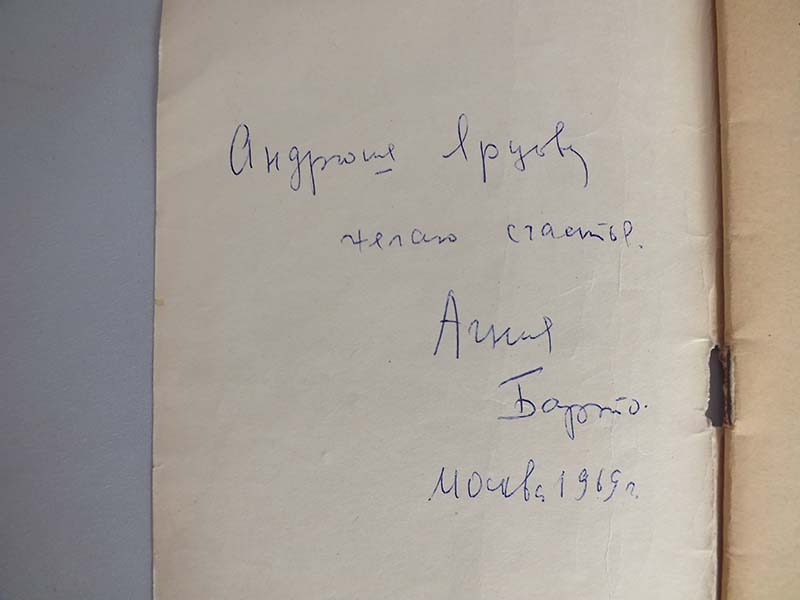 Андрюше Ярцову
желаю счастья.
Агния
Барто.
Москва 1969 г.